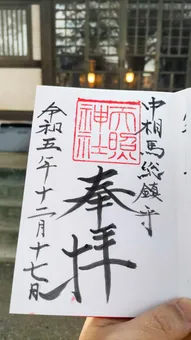 中相馬総鎮守
天照神社
奉拝
令和五年十二月十七日